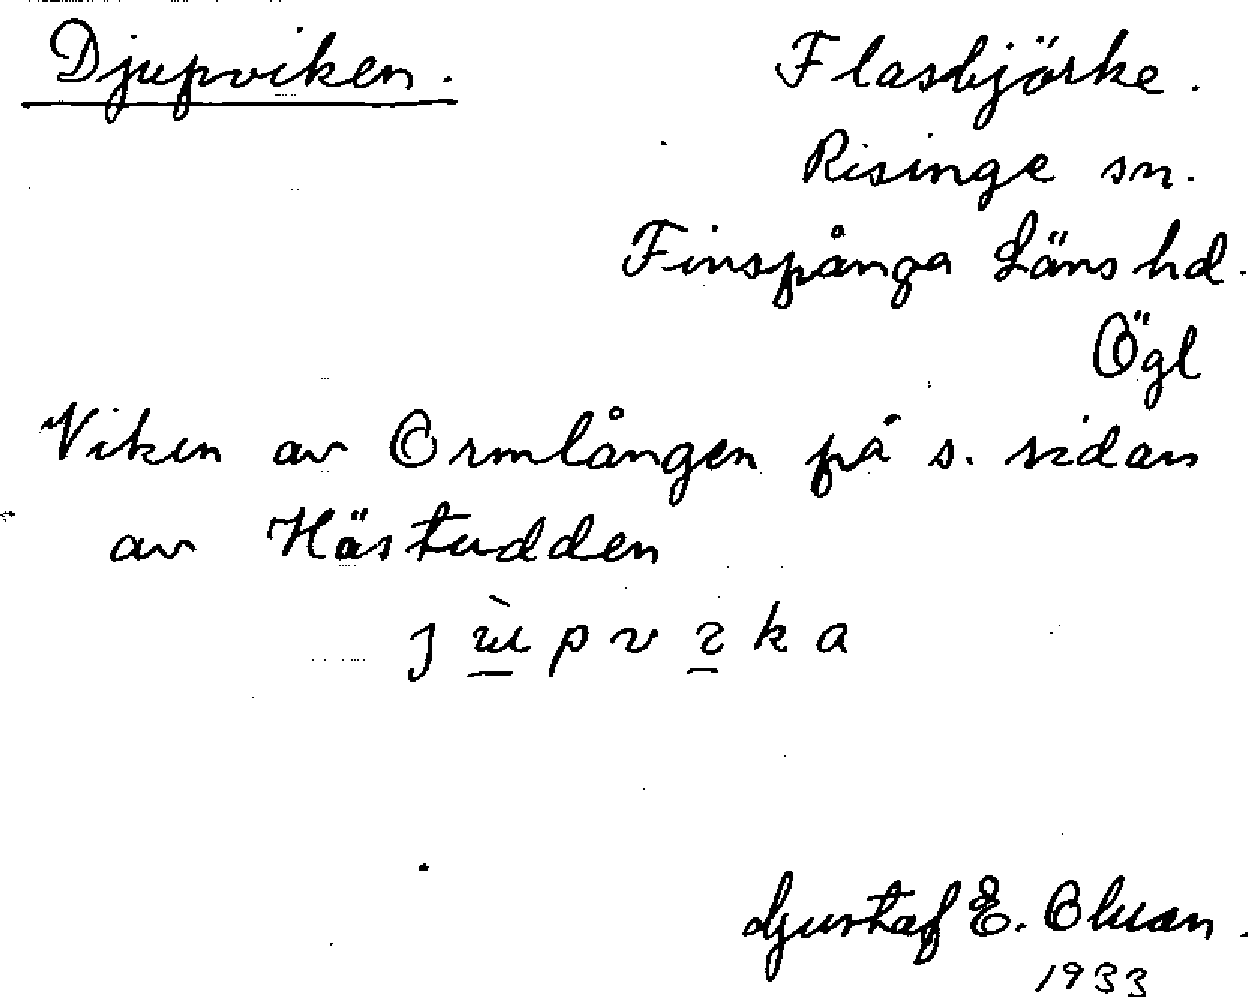 Djupviken.
Flasbjörke.
Risinge sn.
Finspånga Läns hd.
Ögl
Viken av Ormlången på s. sidan
av Hästudden
Gustaf E.
1933